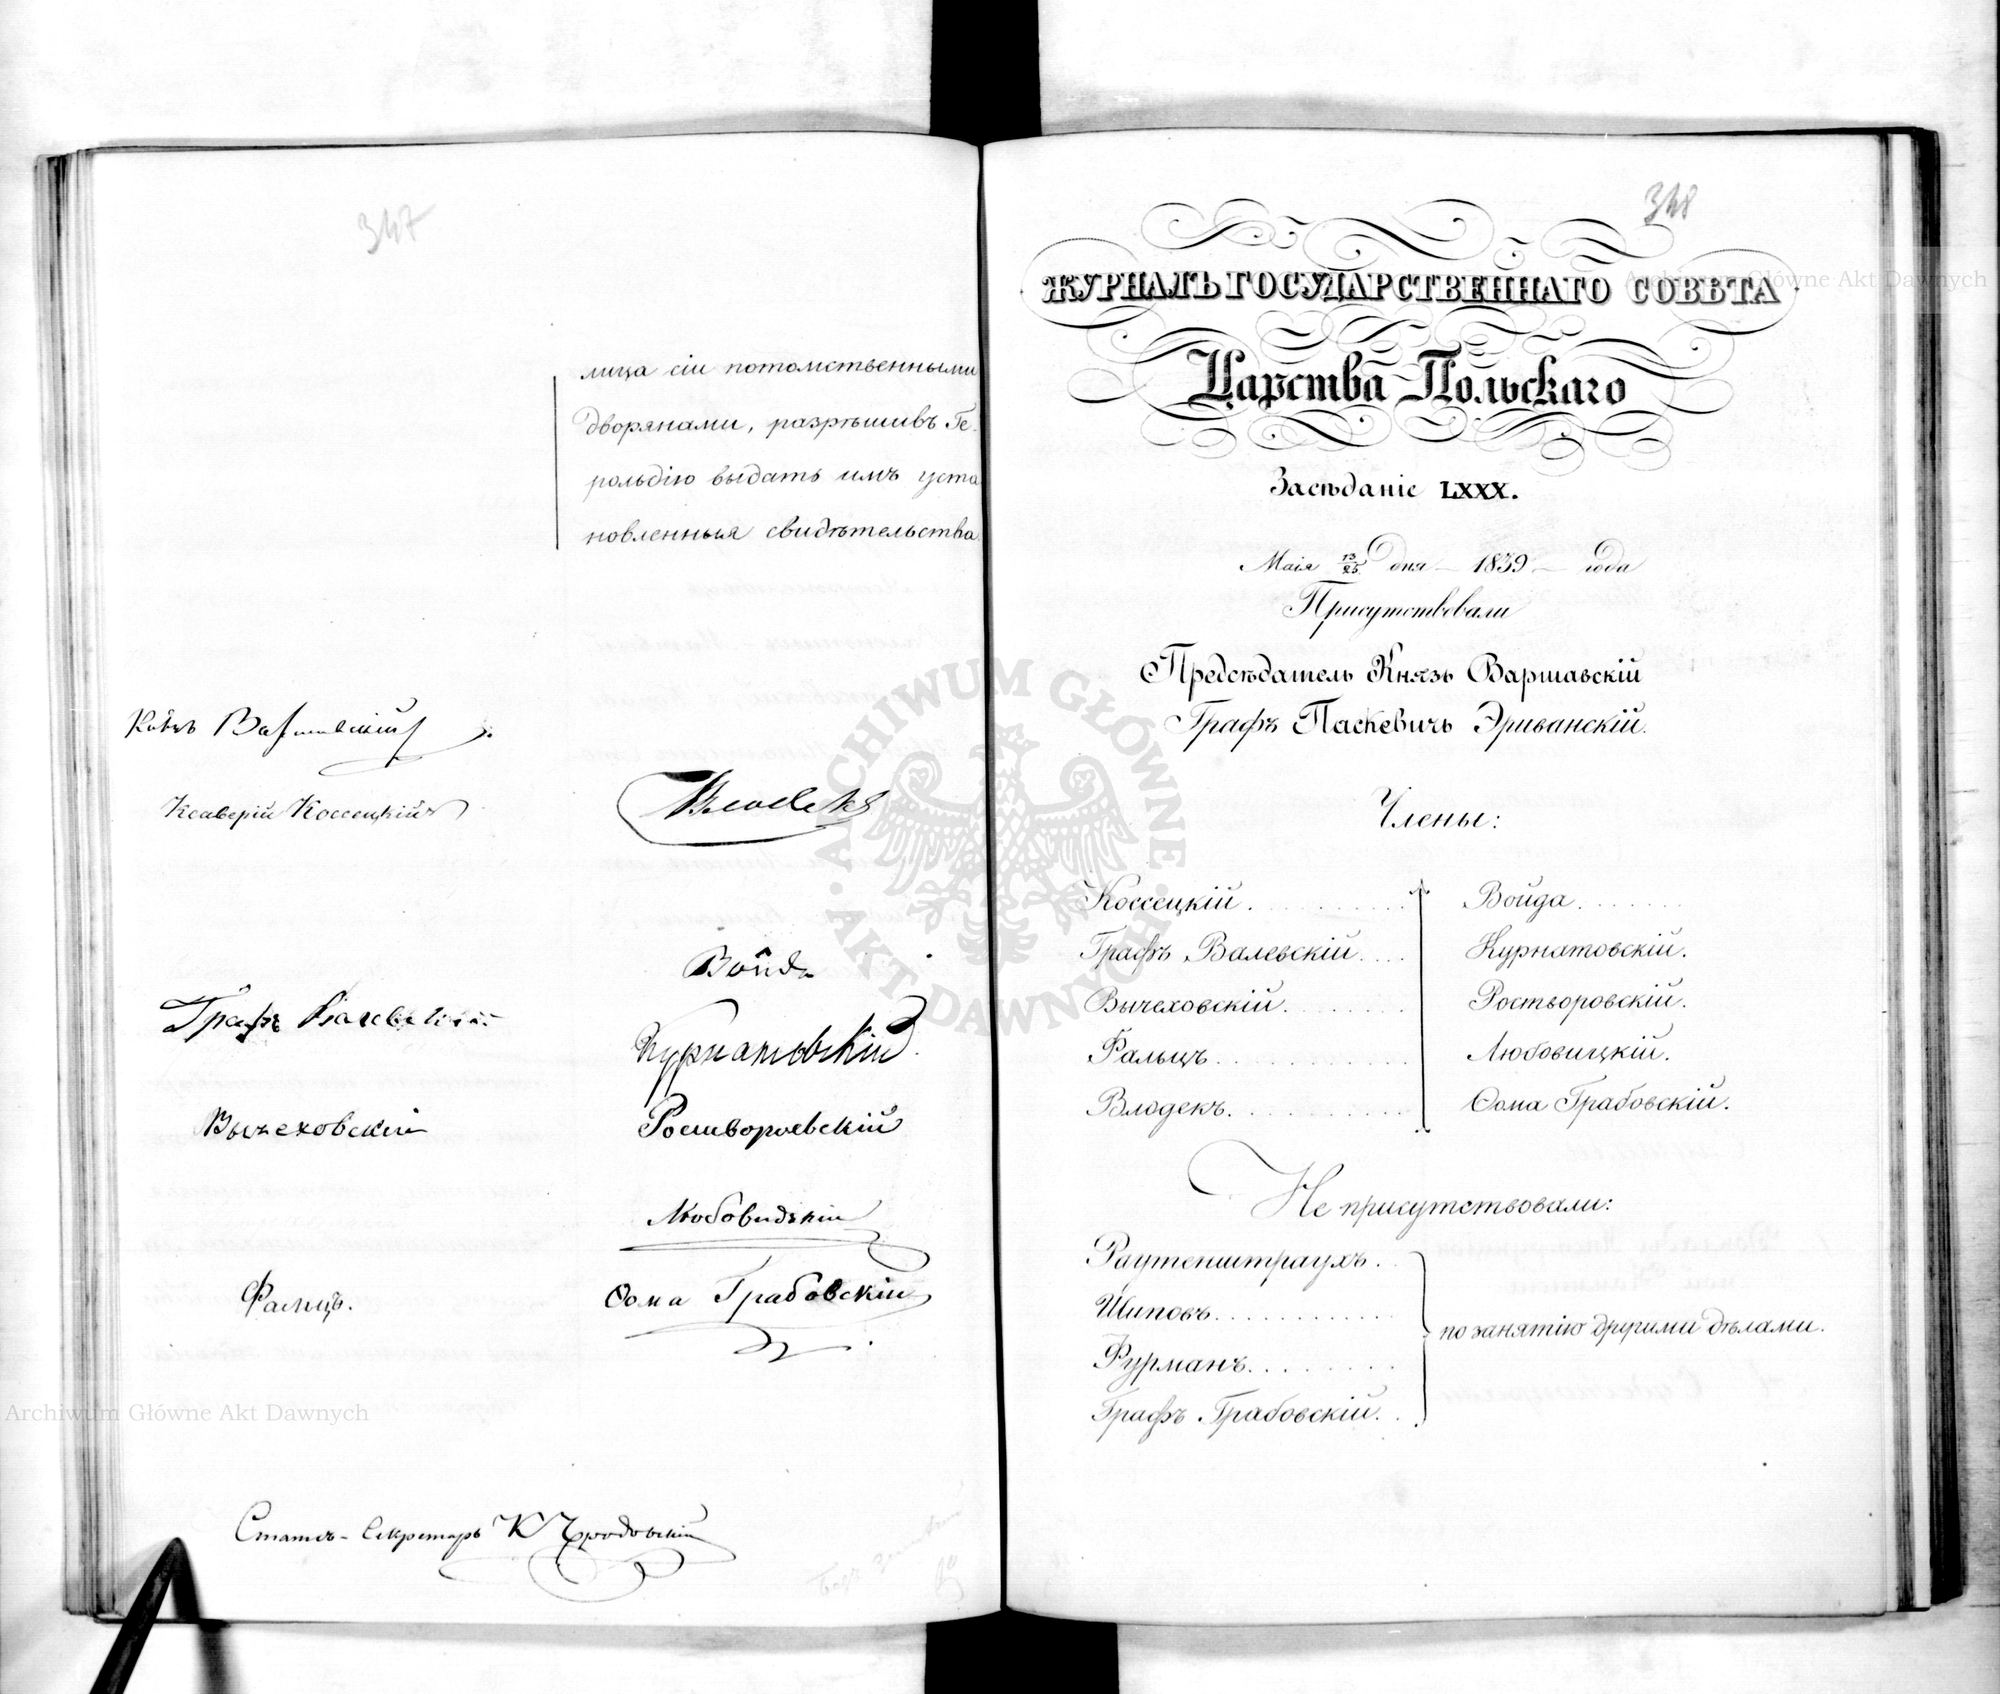 347
лица сіи потомственными
дворянами, разрѣшивъ Ге-
рольдію выдать имъ уста
новленныя свидѣтельства.
Князь Варшавскій
Ксаверій Коссецкій
Влодекъ
Войда
Графъ Валевскій
Курнатовскій
Вычеховскій
Роствороввскій
Любовидзкій
Фальцъ.
Ѳома Грабовскій
Статсъ-Секретарь К
348
ЖУРНАЛЪ ГОСУДАРСТВЕННАГО СОВѢТА
Царства Польскаго
Засѣданіе LXXX.
Маія 13/25 дня – 1839 – года
Присутствовали
Предсѣдатель Князь Варшавскій
Графъ Паскевичъ Эриванскій.
Члены:
Коссецкій. Войда.
Графъ Валевскій. Курнатовскій.
Вычеховскій. Ростворовскій.
Фальцъ. Любовицкій.
Влодекъ. Ѳома Грабовскій.
Не присутствовали:
Раутенштраухъ.
Шиповъ.
по занятію другими дѣлами.
Фурманъ.
Графъ Грабовскій.
Archiwum Główne Akt Dawnych
ARCHIWUM GŁÓWNE AKT DAWNYCH
Archiwum Główne Akt Dawnych